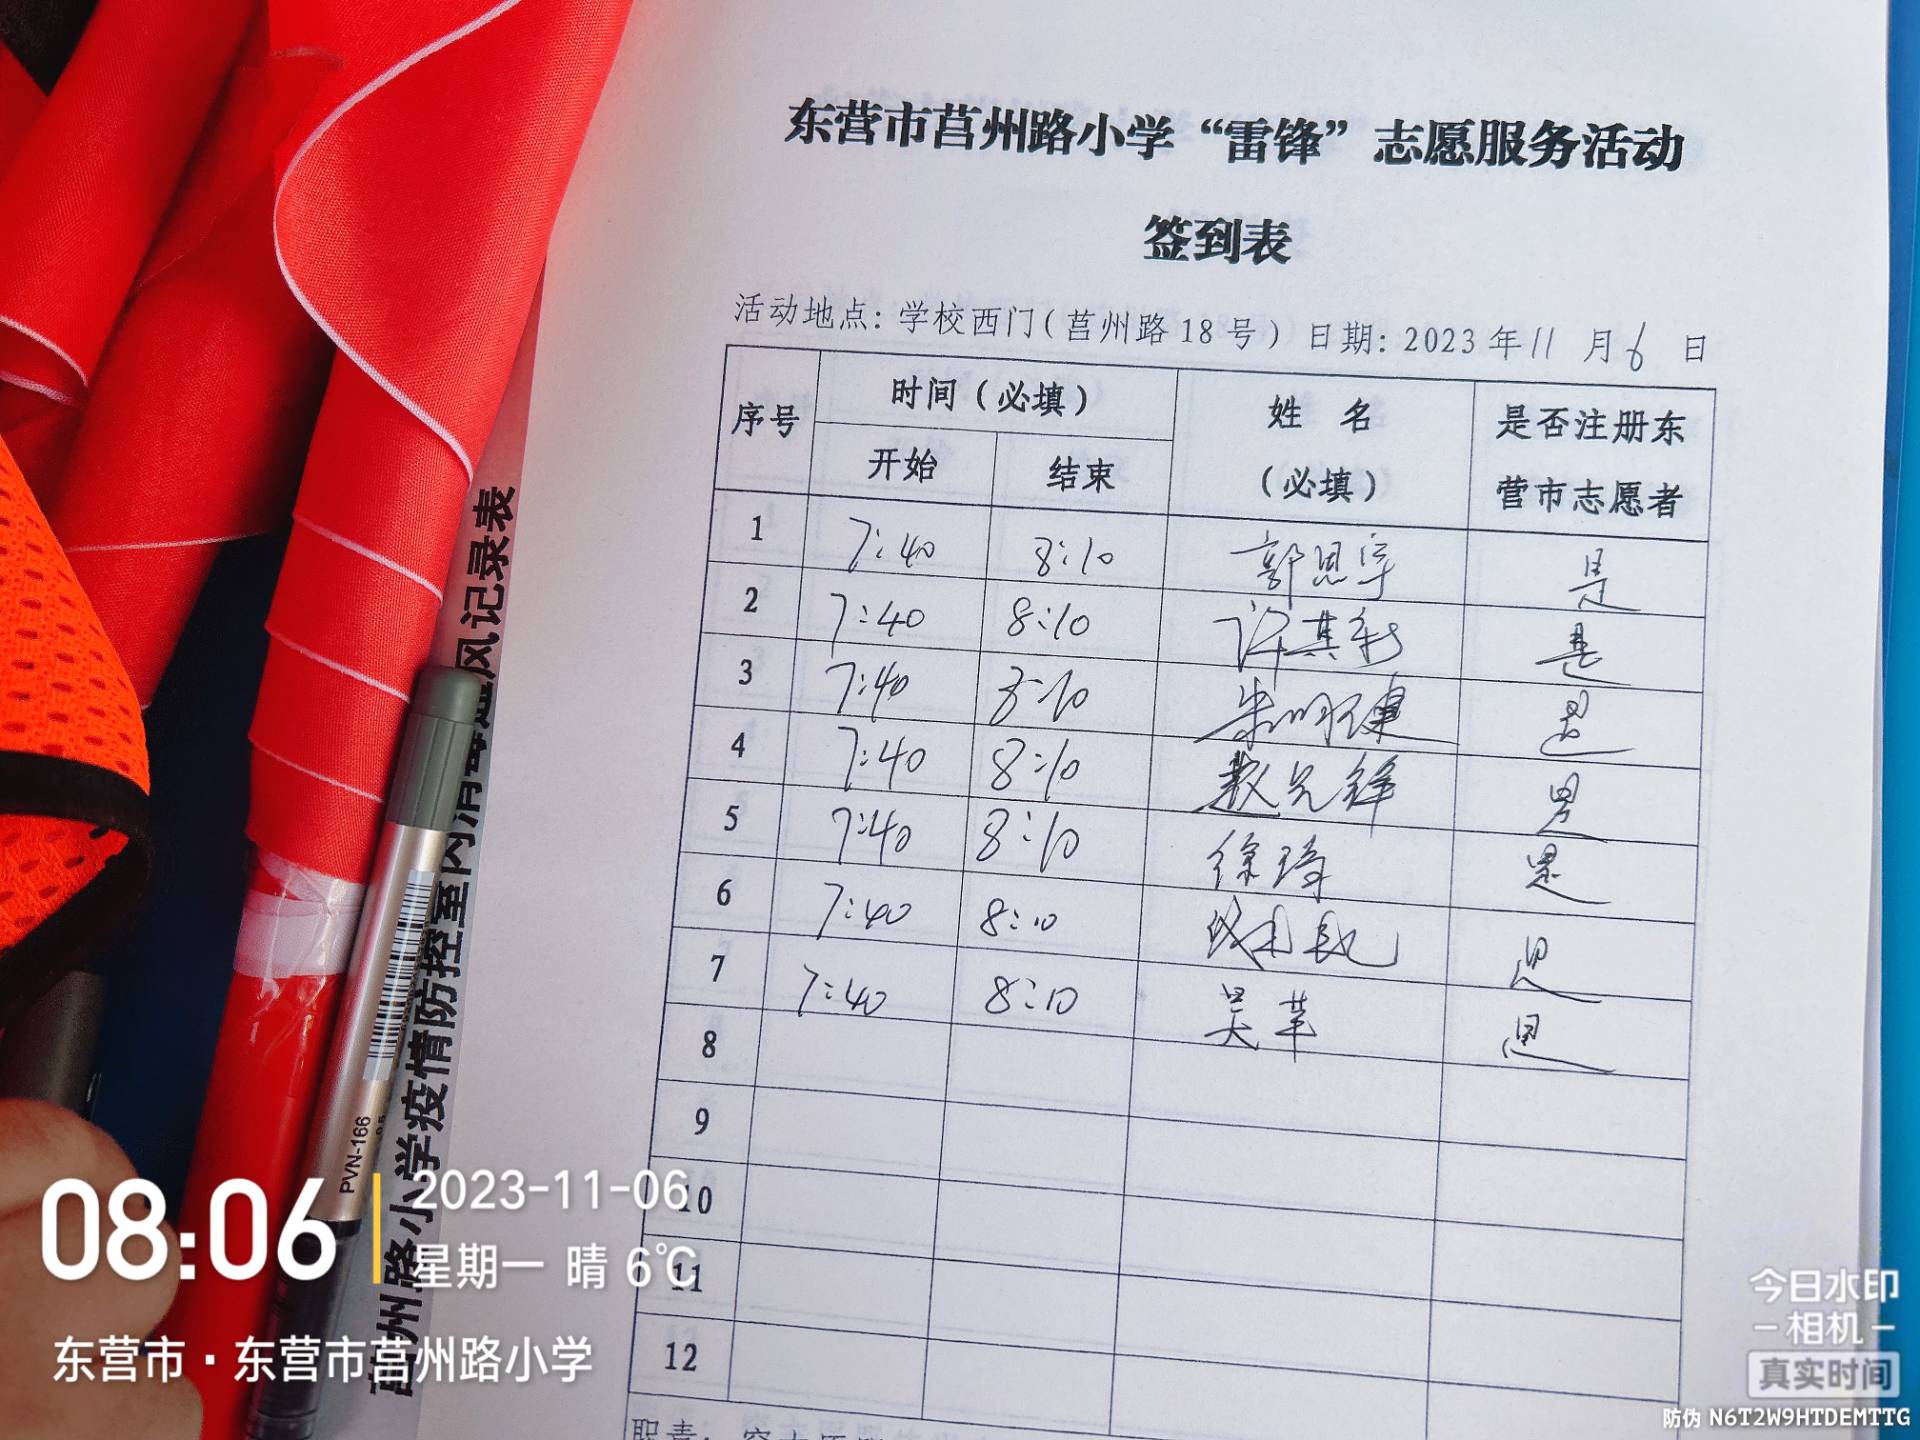 东营市莒州路小学“雷锋”志愿服务活动
签到表
活动地点：学校西门（莒州路18号）日期：2023年11月6日
序号 时间（必填） 姓 名 是否注册东
开始 结束 （必填） 营市志愿者
1 7:40 8:10 郭思宇 是
2 7:40 8:10 许其彩 是
3 7:40 8:10 朱明健 是
4 7:40 8:10 是
5 7:40 8:10 徐琦 是
6 7:40 8:10 是
7 7:40 8:10 吴苹 是
8
9
10
11
12
职责：
莒州路小学疫情防控室内消毒通风记录表
PVN-166
08:06
2023-11-06
星期一 晴 6℃
东营市·东营市莒州路小学
今日水印
相机
真实时间
防伪 N6T2W9HTDEMTTG